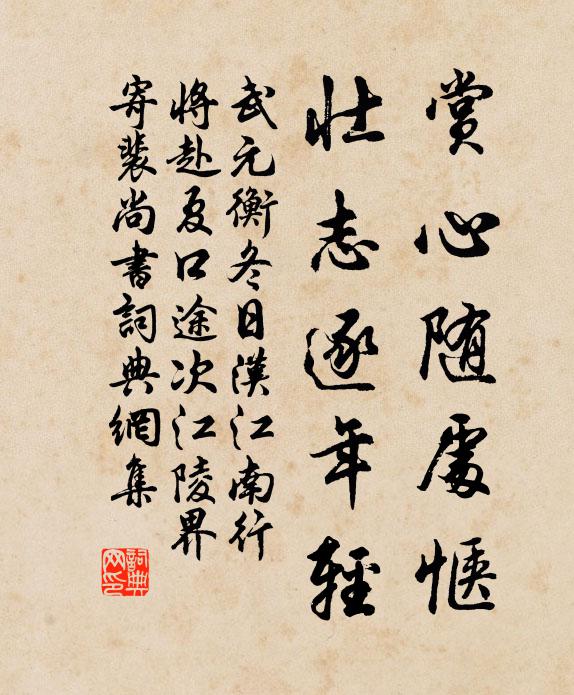 赏心随處愜
壮志逐年輕
武元衡冬日漢江南行
將赴夏口途次江陵界
寄裴尚書詞典網集
詞典网印